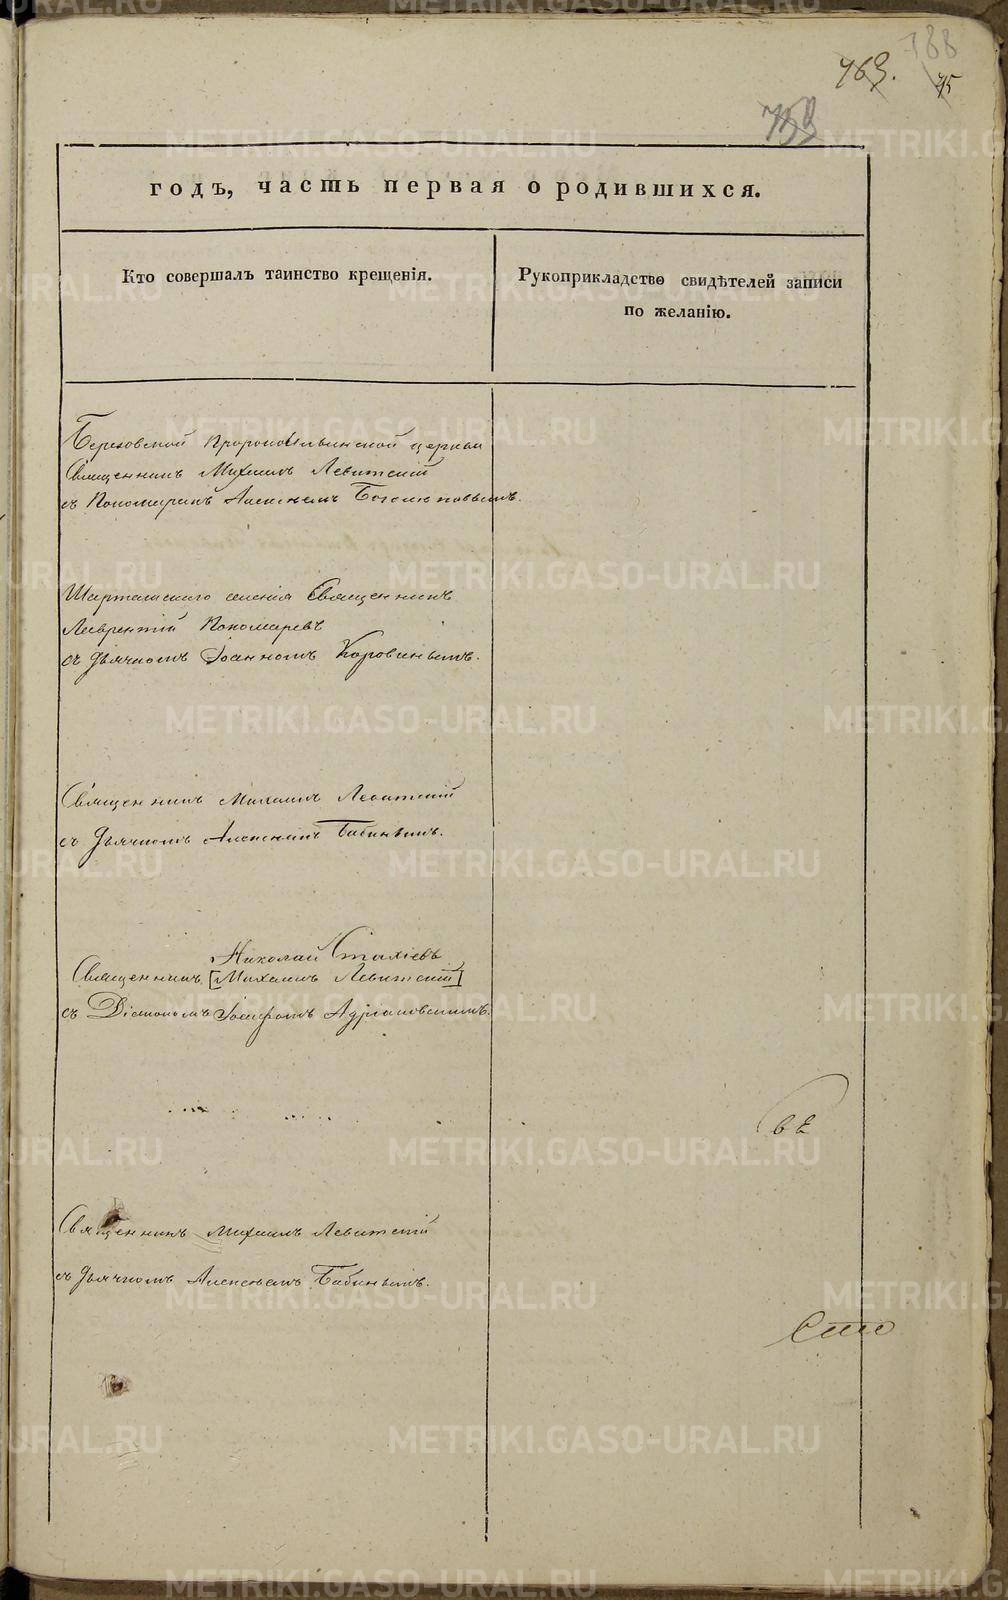 188
763.
75
759
годъ, часть первая о родившихся.
Кто совершалъ таинство крещенія.
Рукоприкладство свидѣтелей записи
по желанію.
Березовской Пророкоильинской церкви
Священникъ Михаилъ Левитскій
съ Пономаремъ Алексѣемъ
Шарташскаго селенія Священникъ
Лаврентій Пономаревъ
съ Дьячкомъ Іоанномъ Коровинымъ.
Священникъ Михаилъ Левитскій
съ Дьячкомъ Алексѣемъ Бабинымъ.
Николай Стахіевъ
Священникъ [Михаилъ Левитскій]
съ Діакономъ Іосифомъ Адріановскимъ.
Священникъ Михаилъ Левитскій
съ Дьячкомъ Алексѣемъ Бабинымъ.
METRIKI.GASO-URAL.RU